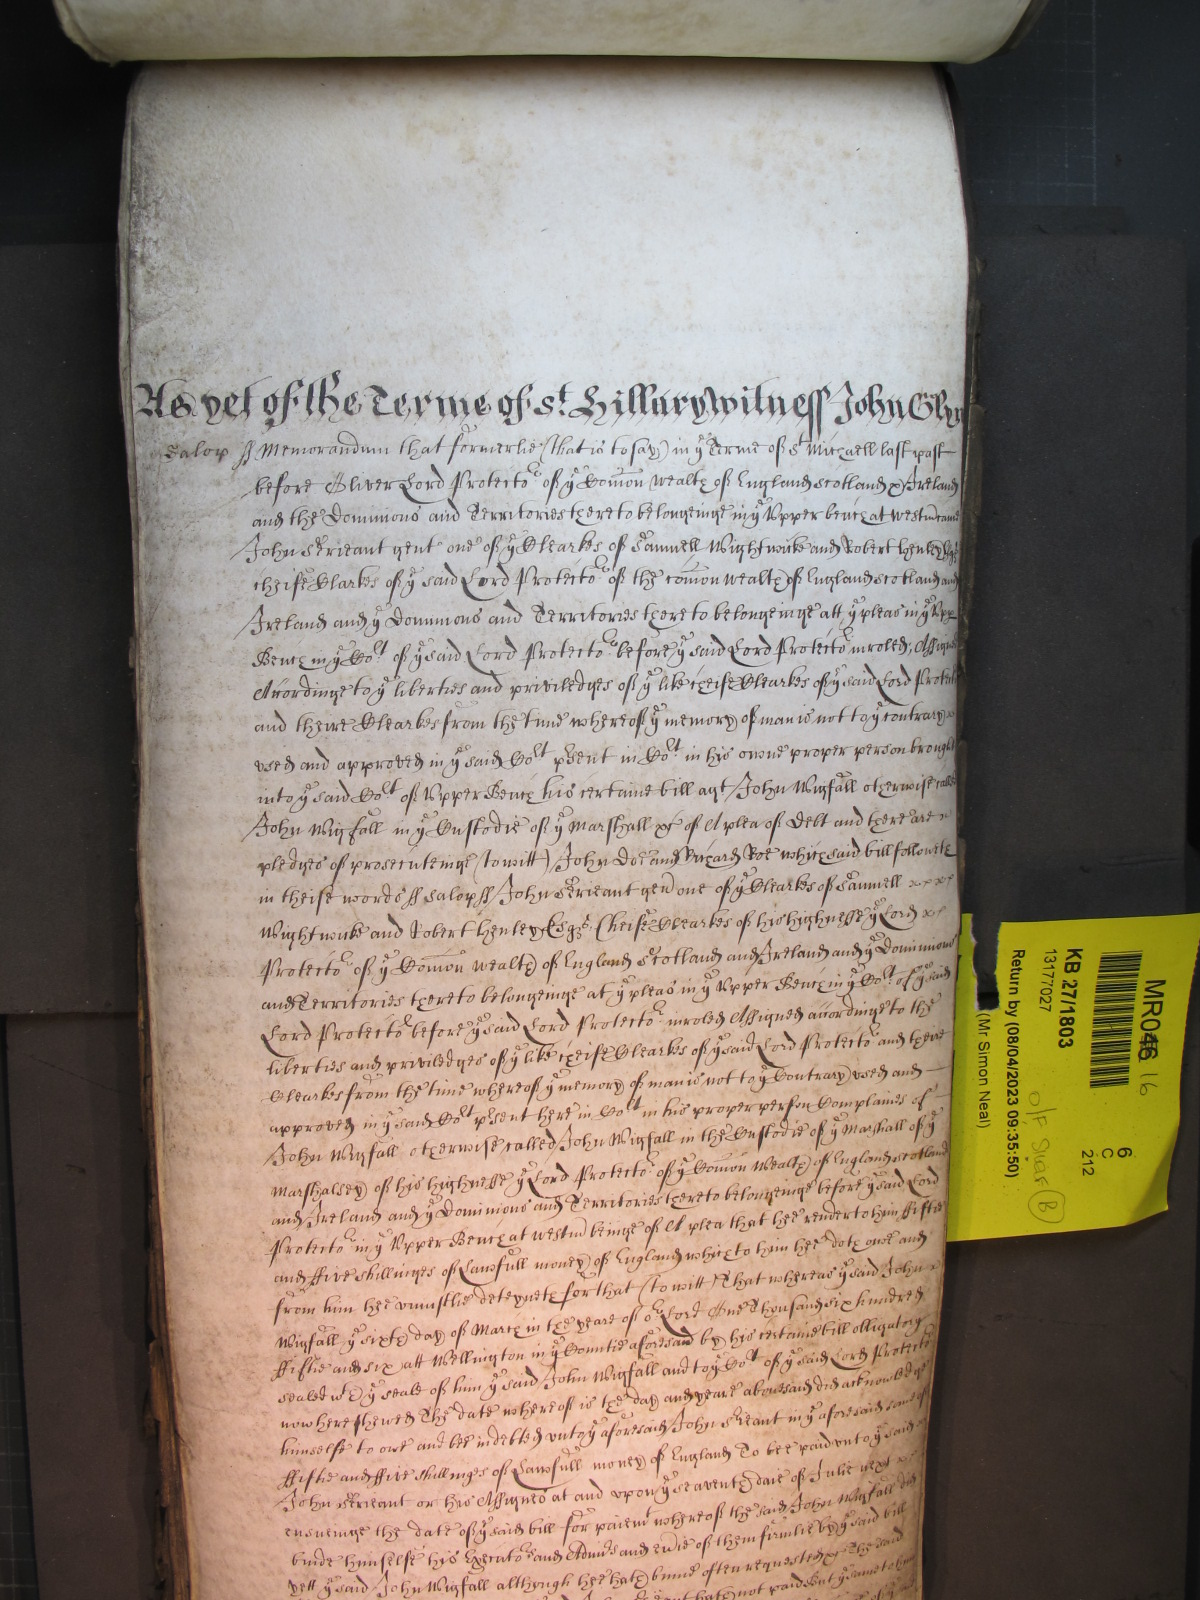 As yet of the Terme of St. Hillary witness John Glyn
Salop ss Memorandum that formerlie (that is to say) in ye Terme of St Michaell last past
before Oliver Lord Protector of ye Comon wealth of England Scotland & Ireland
and the Dominions and Territories thereto belongeinge in ye Upper bench at Westm came
John Serieant gent one of ye Clearkes of Samuell Wightwicke and Robert Henley Esqs
cheife Clarkes of ye said Lord Protector of the comon wealth of England Scotland and
Ireland and ye Dominions and Territories thereto belongeinge att ye pleas in ye Upp
Bench in ye Cort of ye said Lord Protector before ye said Lord Protector inroled, Assigned
Accordinge to ye liberties and priviledges of ye like cheife Clearkes of ye said Lord Protect
and theire Clearkes from the time whereof ye memory of man is not to ye contrary
used and approved in ye said Cort psent in Cort in his owne proper person brought
into ye said Cort of Upper Bench his certaine bill agt John Wigfall otherwise called
John Wigfall in ye Custodie of ye Marshall &c of A plea of Debt and there are
pledges of prosecuteinge (to witt) John Doe and Richard Roe which said bill followeth
in theise words ss Salop ss John Serieant gen one of ye Clearkes of Samuell
Wightwicke and Robert Henley Esqrs Cheife Clearkes of his highnesse ye Lord
Protector of ye Comon wealth of England Scotland and Ireland and ye Dominions
and Territories thereto belongeinge at ye pleas in ye Upper Bench in ye Cort of ye said
Lord Protector before ye said Lord Protector inroled Assigned accordinge to the
liberties and priviledges of ye like cheife Clearkes of ye said Lord Protector and theire
Clearkes from the time whereof ye memory of man is not to ye Contrary used and
approved in ye said Cort psent here in Cort in his proper person Complaines of
John Wigfall otherwise called John Wigfall in the Custodie of ye Marshall of ye
Marshalsey of his highnesse ye Lord Protector of ye Comon Wealth of England Scotland
and Ireland and ye Dominions and Territories thereto belongeinge before ye said Lord
Protector in ye Upper Bench at Westm beinge of A plea that hee render to him fiftie
and ffive shillinges of Lawfull money of England which to him hee doth owe and
from him hee uniustlie deteyneth for that (to witt) That whereas ye said John
Wigfall ye sixth day of March in the yeare of or Lord One Thousand six hundred
ffiftie and six att Wellington in ye Countie aforesaid by his certaine bill obligatory
sealed wth ye seale of him ye said John Wigfall and to ye Cort of ye said Lord Protector
now here shewed The date whereof is the day and yeare abovesaid did acknowledge
himselfe to owe and bee indebted unto ye aforesaid John Serieant in ye aforesaid some of
ffiftie and ffive shillinges of Lawfull money of England To bee paid unto ye said
John Serieant or his Assignes at and upon ye seaventh daie of Julie next
ensueinge the date of ye said bill for paiemt whereof the said John Wigfall did
binde himselfe his Executors and Admrs and everie of them firmlie by ye said bill
yett ye said John Wigfall although hee hath binne often requested &c The said
hath not paid but ye same to him
MR046 16
6
C
212
KB 27/1803
13177027
O/F Size B
Return by (08/04/2023 09:35:50)
(Mr Simon Neal)